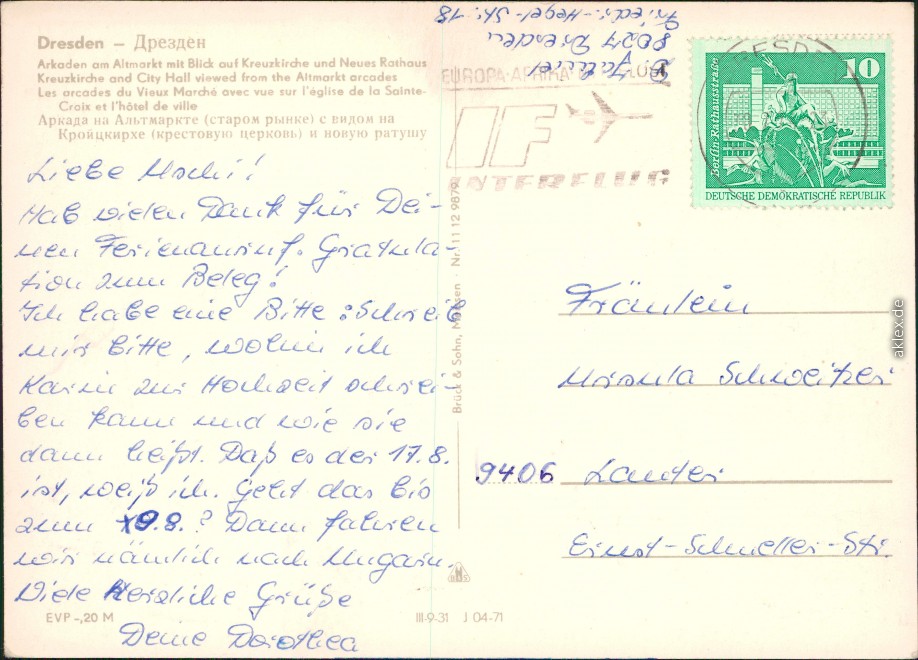 Dresden – Дрезден
Arkaden am Altmarkt mit Blick auf Kreuzkirche und Neues Rathaus
Kreuzkirche and City Hall viewed from the Altmarkt arcades
Les arcades du Vieux Marché avec vue sur l'église de la Sainte-
Croix et l'hôtel de ville
Аркада на Альтмаркте (старом рынке) с видом на
Кройцкирхе (крестовую церковь) и новую ратушу
Liebe Uschi!
Hab vielen Dank für Dei-
nen Ferienanruf. Gratula-
tion zum Beleg!
Ich habe eine Bitte: Schreib
mir bitte, wohin ich
Karin zur Hochzeit schrei-
ben kann und wie sie
dann heißt. Daß es der 17.8.
ist, weiß ich. Geht das bis
zum 9.8.? Dann fahren
wir nämlich nach Ungarn.
Viele Herzliche Grüße
Deine Dorothea
EVP -,20 M
III-9-31 J 04-71
Brück & Sohn, Meissen - Nr. 11 12 9879
8027 Dresden
Friedr.-Hegel-Str. 18
EUROPA·AFRIKA
IF
INTERFLUG
Berlin-Rathausstraße
10
DEUTSCHE DEMOKRATISCHE REPUBLIK
Fräulein
Ursula Schweitzer
9406 Lauter
Ernst-Schneller-Str.
aklex.de